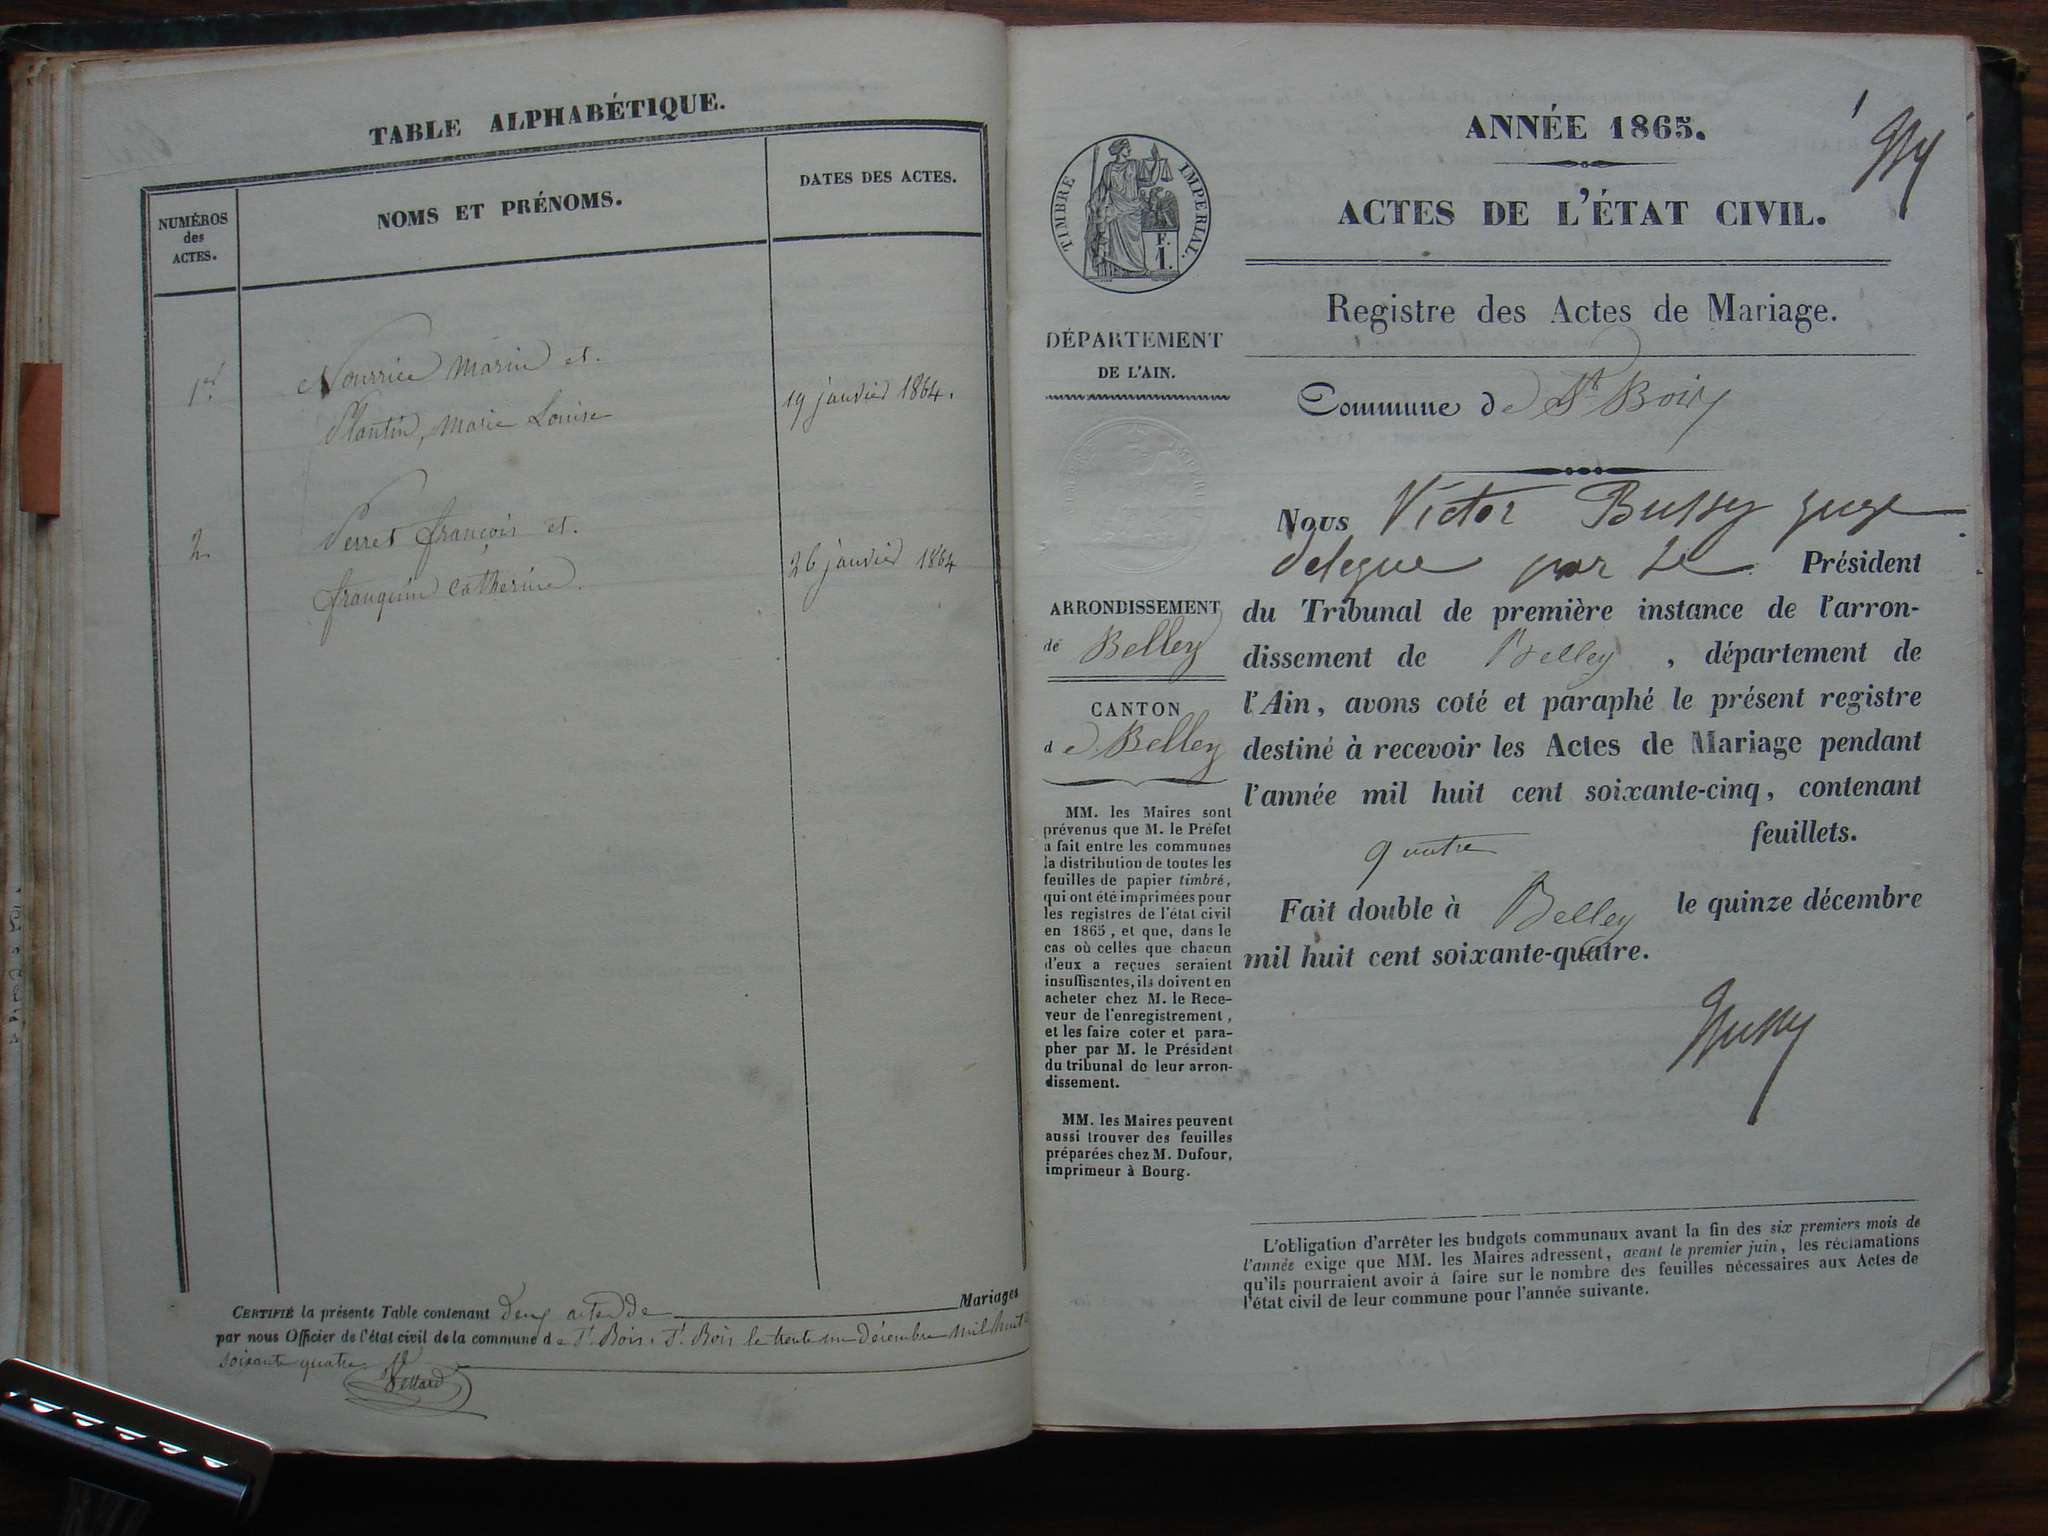 TABLE ALPHABÉTIQUE.
NUMÉROS
des
ACTES.
NOMS ET PRÉNOMS.
DATES DES ACTES.
1er
Nourrice Marin et
Plantin, Marie Louise
19 janvier 1864.
2.
Perret françois et
franquin Catherine.
26 janvier 1864
CERTIFIÉ la présente Table contenant deux actes de Mariages
par nous Officier de l'état civil de la commune de St Bois. St Bois le trente un Décembre mil huit
soixante quatre
TIMBRE IMPÉRIAL.
F.
1.
DÉPARTEMENT
DE L'AIN.
ARRONDISSEMENT
de Belley
CANTON
de Belley
MM. les Maires sont
prévenus que M. le Préfet
a fait entre les communes
la distribution de toutes les
feuilles de papier timbré,
qui ont été imprimées pour
les registres de l'état civil
en 1865, et que, dans le
cas où celles que chacun
d'eux a reçues seraient
insuffisantes, ils doivent en
acheter chez M. le Rece-
veur de l'enregistrement,
et les faire coter et para-
pher par M. le Président
du tribunal de leur arron-
dissement.
MM. les Maires peuvent
aussi trouver des feuilles
préparées chez M. Dufour,
imprimeur à Bourg.
1
ANNÉE 1865.
ACTES DE L'ÉTAT CIVIL.
Registre des Actes de Mariage.
Commune de St Bois
Nous Victor Bussy juge
delegue par le Président
du Tribunal de première instance de l'arron-
dissement de Belley, département de
l'Ain, avons coté et paraphé le présent registre
destiné à recevoir les Actes de Mariage pendant
l'année mil huit cent soixante-cinq, contenant
quatre feuillets.
Fait double à Belley le quinze décembre
mil huit cent soixante-quatre.
Bussy
L'obligation d'arrêter les budgets communaux avant la fin des six premiers mois de
l'année exige que MM. les Maires adressent, avant le premier juin, les réclamations
qu'ils pourraient avoir à faire sur le nombre des feuilles nécessaires aux Actes de
l'état civil de leur commune pour l'année suivante.